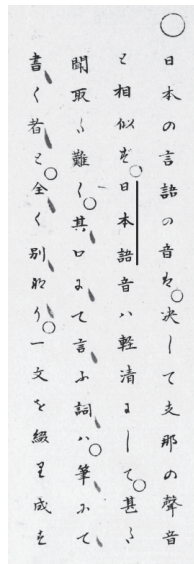 〇日本の言語の音は決して支那の聲音
と相似ず〇日本語音ハ軽清にして〇甚だ
聞取り難し〇其口にて言ふ詞ハ〇筆にて
書く者と〇全く別なり〇一文を綴り成を